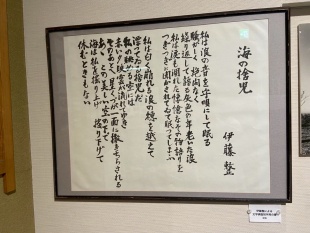 海の捨児
伊藤整
私は浪の音を守唄にして眠る
騒がしく 絶間なく
繰り返して語る灰色の年老いた浪
私は涙も涸れた凄愴なその物語りを
つぎつぎに聞かされてゐて眠つてしまふ
私は白く崩れる浪の穂を越えて
漂つてゐる捨児だ
私の眺める空には
赤い夕映雲が流れてゆき
そのあとへ 星くづが一面に撒きちらされる
あゝこの美しい空の下で
海は私を揺り上げ 揺り下げて
休むときもない